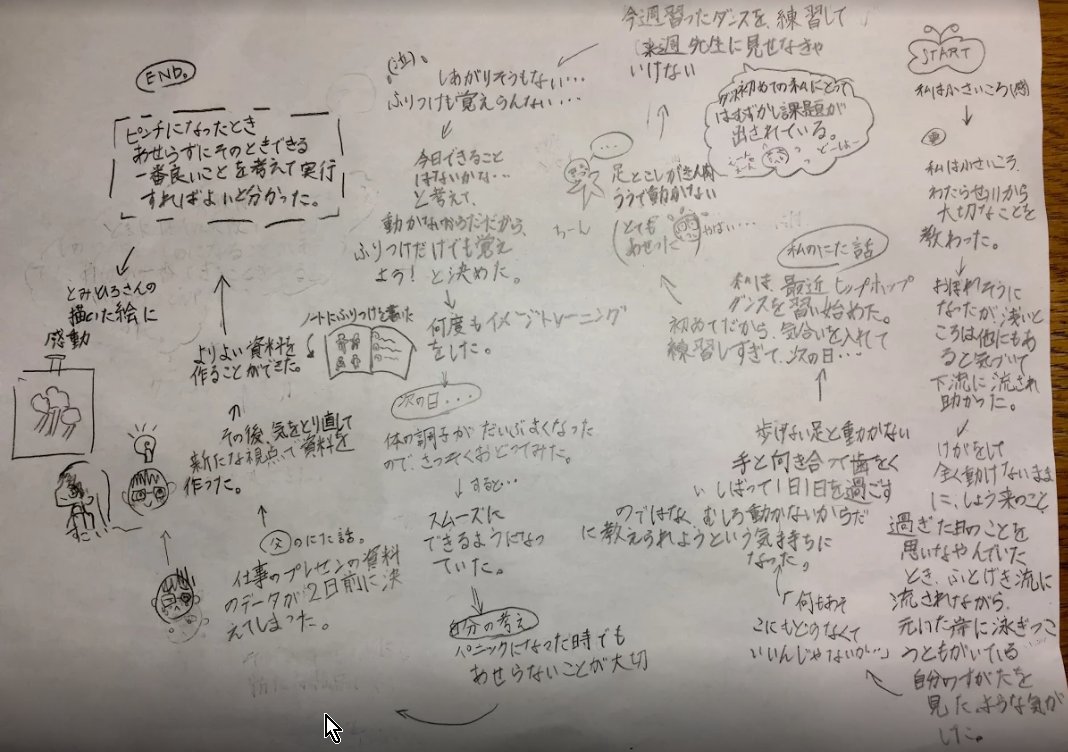 START
私は小さいころ(感)
私は小さいころ、
わたらせ川から
大切なことを
教わった。
おぼれそうに
なったが、浅いと
ころは他にもあ
ると気づいて
下流に流され
助かった。
けがをして
全く動けないまま
に、しょう来のこと、
過ぎた日のことを
思いなやんでいた
とき、ふとげき流に
流されながら、
元いた岸に泳ぎつこ
うともがいている
自分のすがたを
見たような気が
した。
「何もあそ
こにもどらなくて
いいんじゃないか…」
歩けない足と動かない
手と向き合って歯をく
いしばって1日1日を過ごす
のではなく、むしろ動かないからだ
に教えられようという気持ちに
なった。
私のにた話
私は、最近ヒップホップ
ダンスを習い始めた。
初めてだから、気合いを入れて
練習しすぎて、次の日…
足とこしがきん肉
つうで動かない
(とても
あせった)
やばい…
…
ちーん
ダンス初めての私にとって
はむずかしい課題が
出されている。
今週習ったダンスを、練習して
来週、先生に見せなきゃ
いけない
(泣)。
しあがりそうもない…
ふりつけも覚えらんない…
今日できること
はないかな…
と考えて、
動かないからだだから、
ふりつけだけでも覚え
よう!と決めた。
何度もイメージトレーニング
をした。
ノートにふりつけを書いた
次の日...
体の調子がだいぶよくなった
ので、さっそくおどってみた。
すると…
スムーズに
できるようになっ
ていた。
自分の考え
パニックになった時でも
あせらないことが大切
父のにた話。
仕事のプレゼンの資料
のデータが2日前に消
えてしまった。
その後、気をとり直して
新たな視点で資料を
作った。
よりよい資料を
作ることができた。
ピンチになったとき
あせらずにそのときできる
一番良いことを考えて実行
すればよいと分かった。
とみひろさんの
描いた絵に
感動
すごい
END。